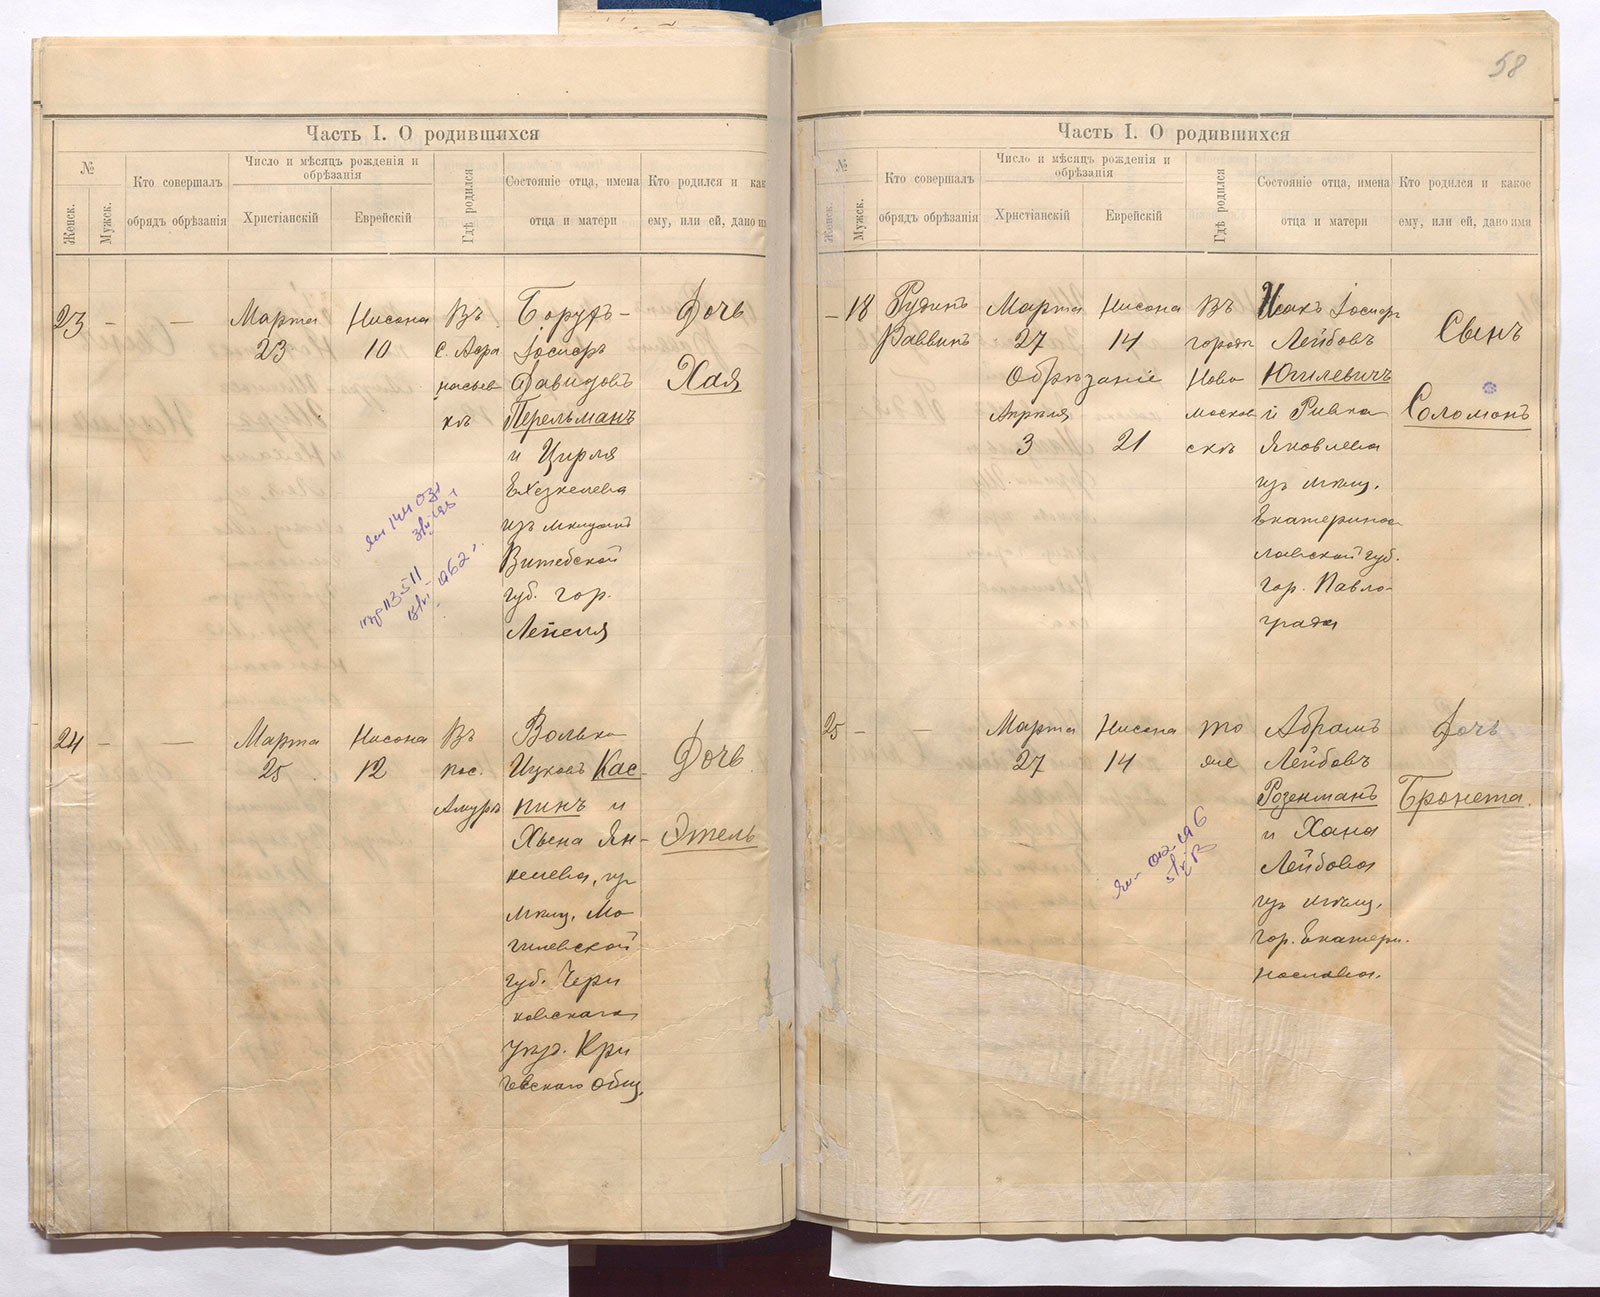 58
Часть I. О родившихся
№
Женск.
Мужск.
Кто совершалъ
обрядъ обрѣзанія
Число и мѣсяцъ рожденія и
обрѣзанія
Христіанскій
Еврейскій
Гдѣ родился
Состояніе отца, имена
отца и матери
Кто родился и как
ему, или ей, дано им
23
—
—
Марта
23
Нисона
10
Въ
с. Афа
насьев
кѣ
Борухъ-
Іосифъ
Давидовъ
Перельманъ
и Цирля
Ехезкелева
изъ мѣщанъ
Витебской
губ. гор.
Лепеля
Дочь
Хая
24
—
—
Марта
25
Нисона
12
Въ
пос.
Амуръ
Волько
Ицковъ Кас-
пинъ и
Хьена Ян-
келева, из
мѣщ. Мо
гилевской
губ. Чери
ковскаго
уѣзд. Кри
чевскаго общ.
Дочь
Этель
Часть I. О родившихся
№
Женск.
Мужск.
Кто совершалъ
обрядъ обрѣзанія
Число и мѣсяцъ рожденія и
обрѣзанія
Христіанскій
Еврейскій
Гдѣ родился
Состояніе отца, имена
отца и матери
Кто родился и какое
ему, или ей, дано имя
—
18
Рудинъ
Раввинъ
Марта
27
Нисона
14
Обрѣзаніе
Апрѣля
3
21
Въ
городѣ
Ново
москов
скѣ
Исакъ Іосифъ
Лейбовъ
Югилевичъ
и Ривка
Яковлева
изъ мѣщ.
Екатерино
славской губ.
гор. Павло-
града
Сынъ
Соломонъ
25
—
—
Марта
27
Нисона
14
то
же
Абрамъ
Лейбовъ
Розенманъ
и Хана
Лейбова
изъ мѣщ.
гор. Екатери.
нослава.
Дочь
Бронета.